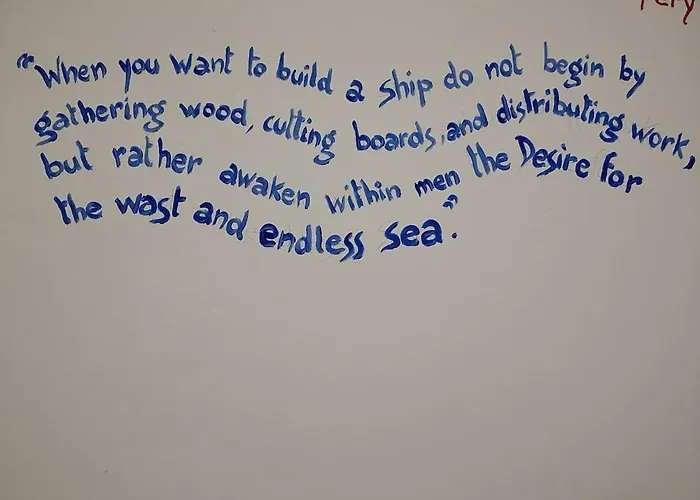 "When you want to build a ship do not begin by
gathering wood, cutting boards, and distributing work,
but rather awaken within men the Desire for
the wast and endless sea."